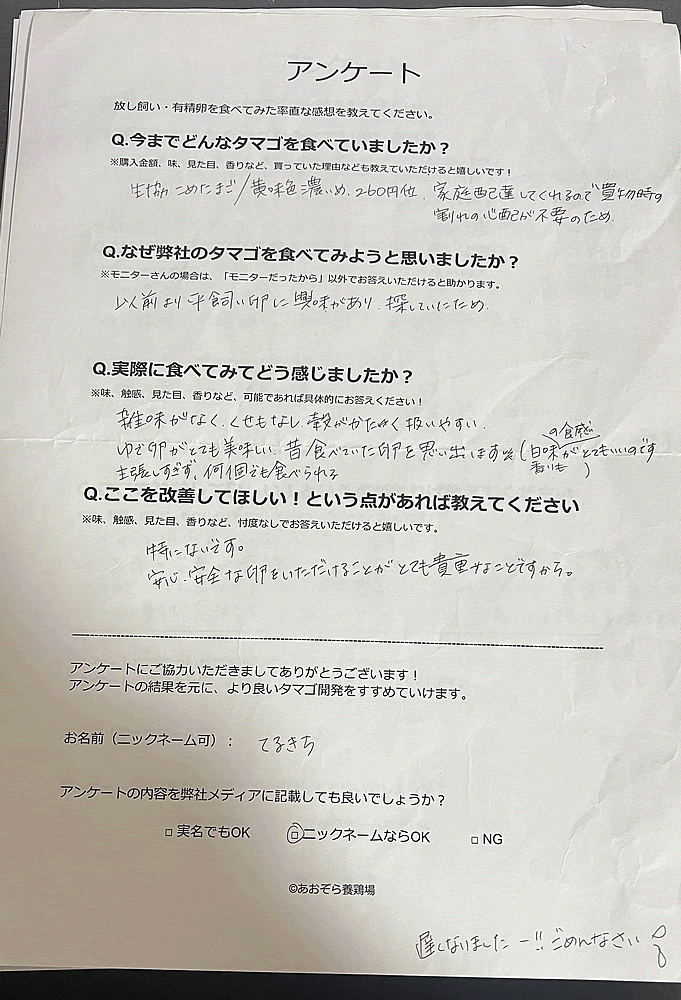 アンケート
放し飼い・有精卵を食べてみた率直な感想を教えてください。
Q.今までどんなタマゴを食べていましたか？
※購入金額、味、見た目、香りなど、買っていた理由なども教えていただけると嬉しいです！
生協 こめたまご/黄味色濃いめ、260円位、家庭配達してくれるので買物時の
割れの心配が不要のため
Q.なぜ弊社のタマゴを食べてみようと思いましたか？
※モニターさんの場合は、「モニターだったから」以外でお答えいただけると助かります。
以前より平飼い卵に興味があり、探していたため
Q.実際に食べてみてどう感じましたか？
※味、触感、見た目、香りなど、可能であれば具体的にお答えください！
雑味がなく、くせもなし、殻がかたく扱いやすい、
の食感
ゆで卵がとても美味しい、昔食べていた卵を思い出します(白味がとてもいいのです
香りも )
主張しすぎず、何個でも食べられる
Q.ここを改善してほしい！という点があれば教えてください
※味、触感、見た目、香りなど、忖度なしでお答えいただけると嬉しいです。
特にないです。
安心、安全な卵をいただけることがとても貴重なことですから。
アンケートにご協力いただきましてありがとうございます！
アンケートの結果を元に、より良いタマゴ開発をすすめていけます。
お名前（ニックネーム可）： てるきち
アンケートの内容を弊社メディアに記載しても良いでしょうか？
□ 実名でもOK □ ニックネームならOK □ NG
©あおぞら養鶏場
遅くなりましたー!! ごめんなさい